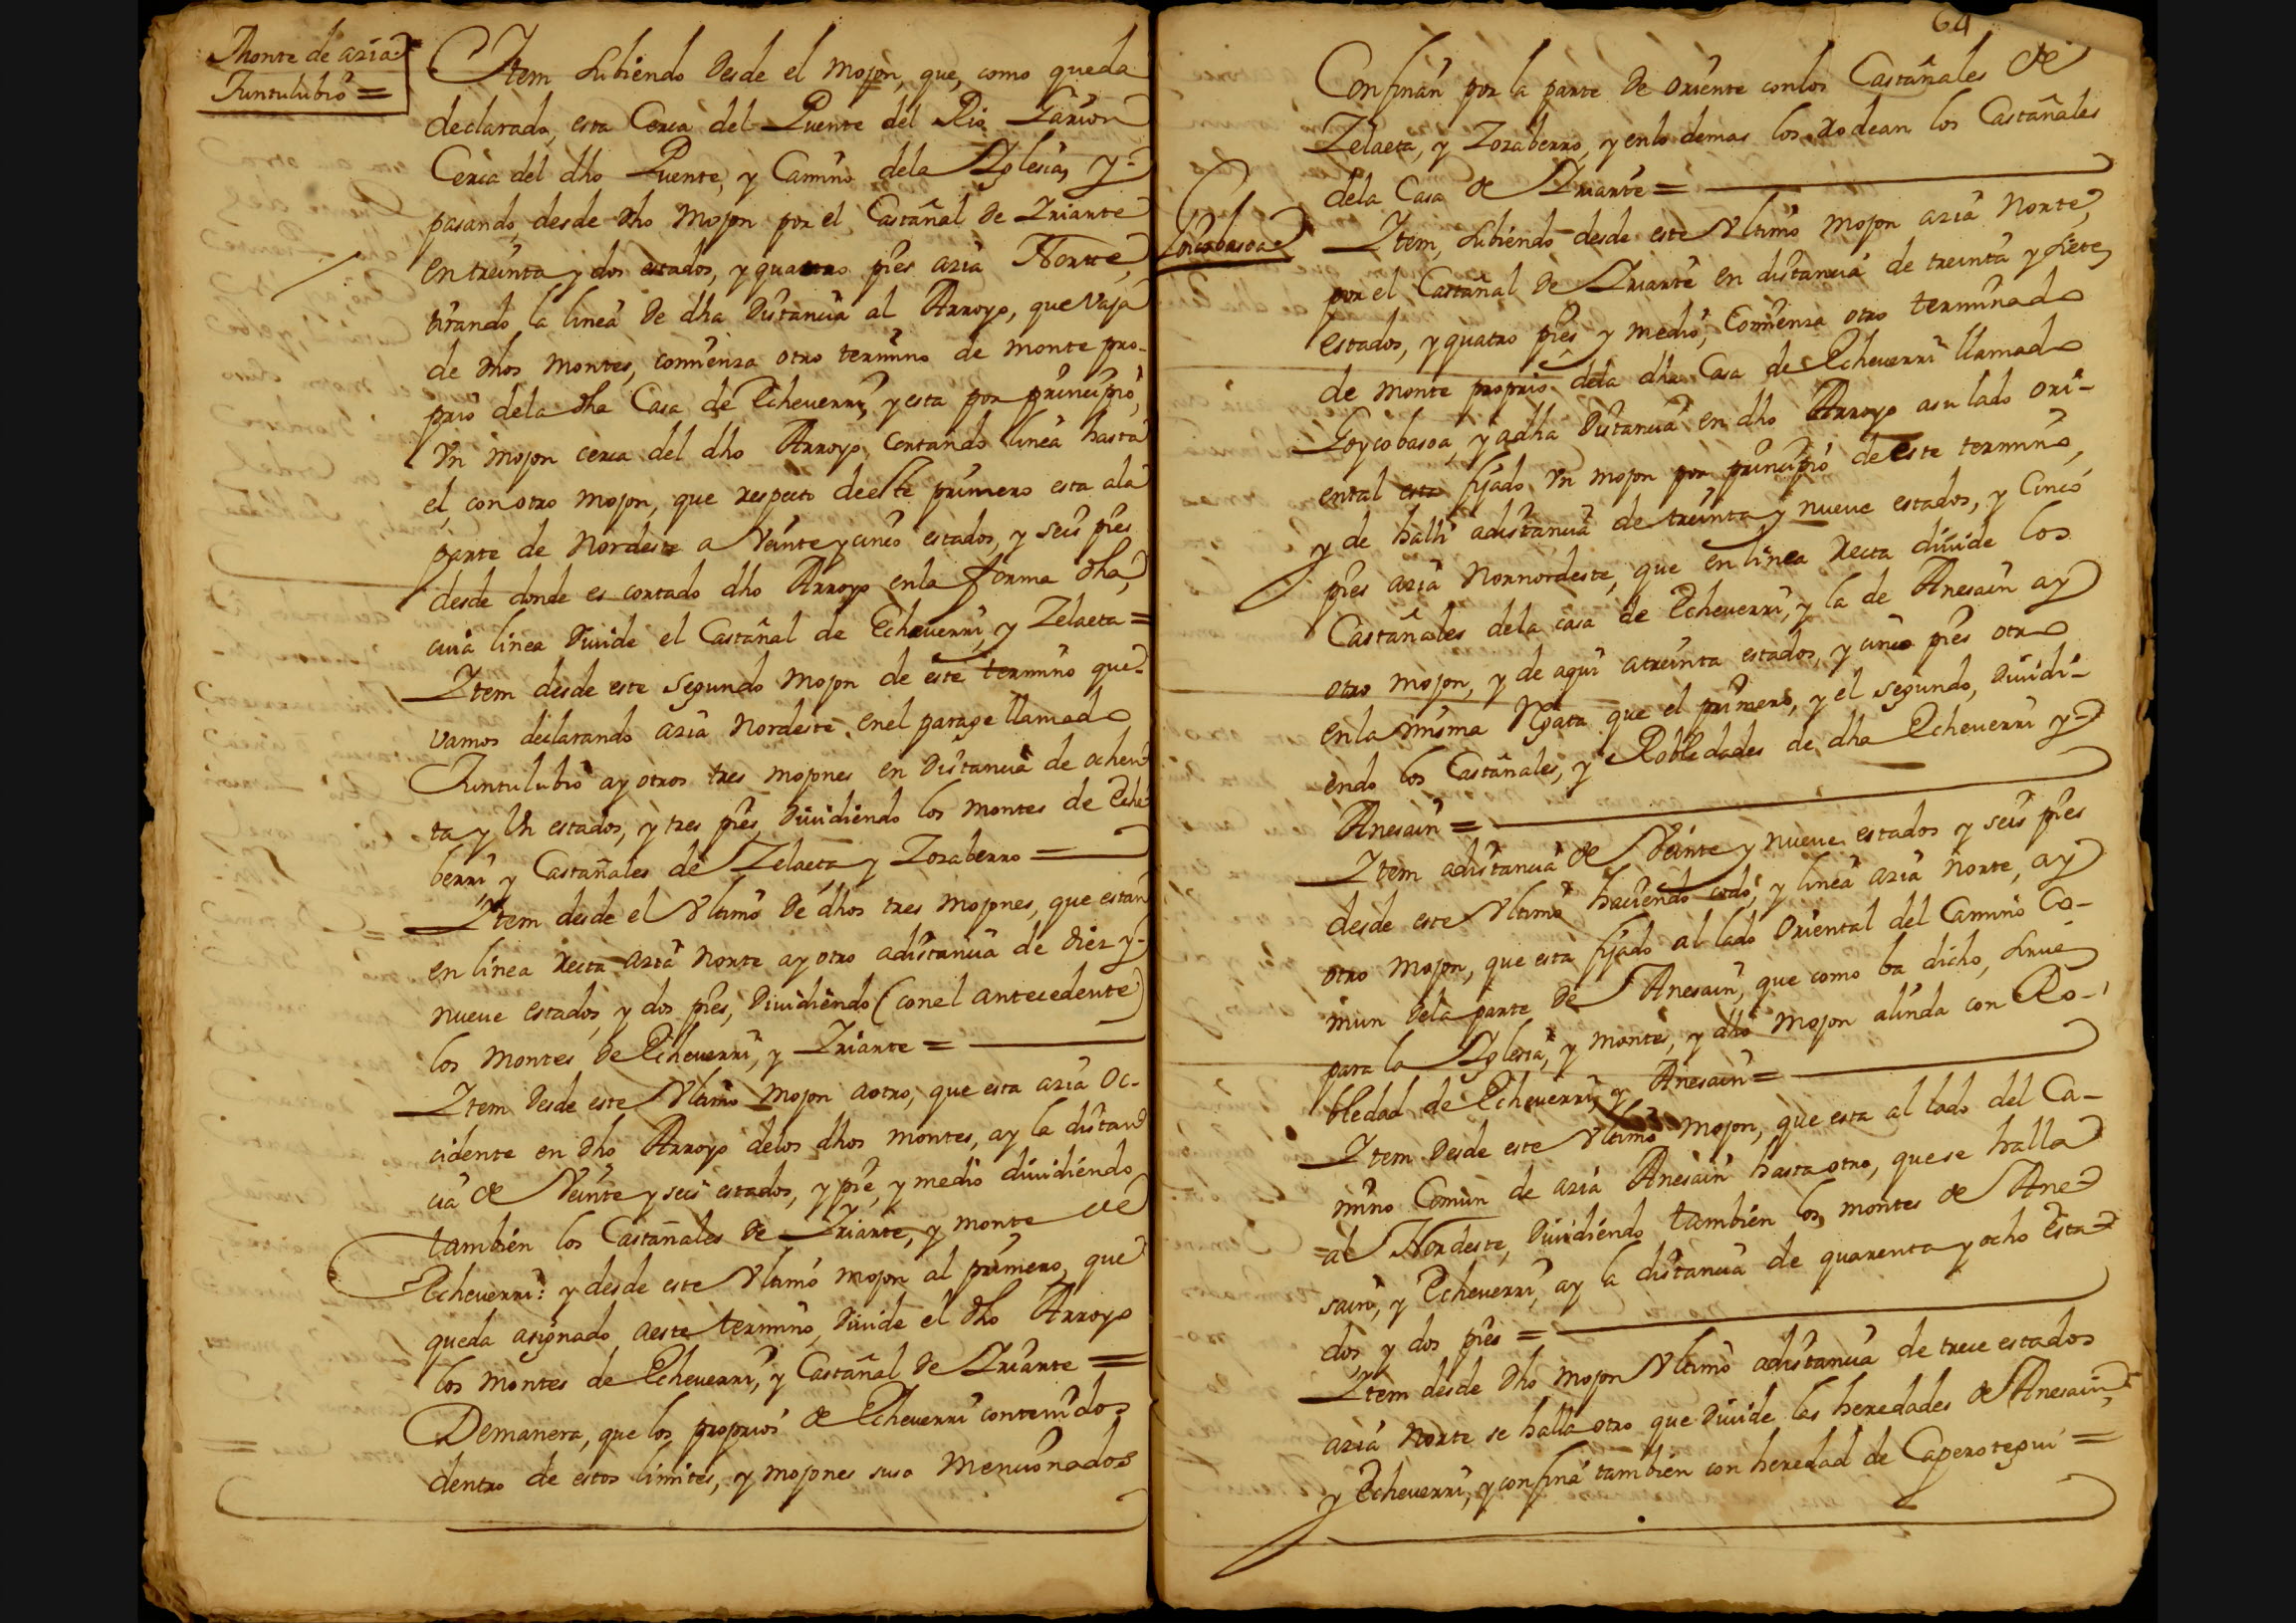 Monte de azia
Juntulubio =
Item subiendo desde el mojon, que, como queda
declarado, esta Cerca del Puente del Rio Larion
Cerca del dho Puente, y Camino dela Iglesia, y
pasando, desde dho Mojon por el Castañal de Iriarte
en treinta y dos estados, y quatro pies azia Norte,
tirando la linea de dha distancia al Arroyo, que vaja
de dhos montes, comienza otro termino de monte pro-
prio dela dha Casa de Echeverri, y esta por principio,
Un mojon cerca del dho Arroyo, Contando linea hasta
el, con otro mojon, que respecto deeste primero esta ala
parte de Nordeste a Veinte y cinco estados, y seis pies
desde donde es cortado dho Arroyo enla forma dha,
cuia linea Divide el Castañal de Echeverri, y Zelaeta =
Item desde este segundo Mojon de este termino que
vamos declarando azia Nordeste enel parage llamado
Juntulubio ay otros tres mojones en Distancia de ochen
ta y Un estados, y tres pies, Dividiendo los montes de Eche
berri y Castañales de Zelaeta y Zozaberro =
Item desde el Ultimo de dhos tres mojones, que estan
en linea recta azia Norte ay otro adistancia de diez y
nueve estados, y dos pies, Dividiendo (con el antecedente)
los montes de Echeverri, y Iriarte =
Item Desde este Ultimo Mojon aotro, que esta azia Oc-
cidente en dho Arroyo delos dhos montes, ay la distan
cia de Veinte y seis estados, y pie, y medio dividiendo
tambien los Castañales de Iriarte, y monte de
Echeverri: y desde este Ultimo mojon al primero, que
queda asignado aeste termino, Divide el dho Arroyo
los montes de Echeverri, y Castañal de Iriarte =
Demanera, que los proprios de Echeverri contenidos
dentro de estos limites, y mojones suso Mencionados
64
Confinan por la parte de oriente conlos Castañales de
Zelaeta, y Zozaberro, y enlo demas los rodean los Castañales
dela Casa de Iriarte =
Goicobasoa
Item, subiendo desde este Ultimo mojon azia Norte,
por el Castañal de Iriarte en distancia de treinta y siete
estados, y quatro pies y medio, Comienza otro terminado
de monte proprio dela dha Casa de Echeverri llamado
Goycobasoa, y adha Distancia en dho Arroyo asu lado ori-
ental esta fijado Un mojon por principio deeste termino,
y de halli adistancia de treinta y nueve estados, y Cinco
pies azia Nornordeste, que en linea recta divide los
Castañales dela casa de Echeverri, y la de Anesain ay
otro mojon, y de aqui atreinta estados, y cinco pies otro
enla misma Rgata que el primero, y el segundo, Dividi-
endo los Castañales, y Robledades de dha Echeverri y
Anesain =
Item adistancia de Veinte y nueve estados y seis pies
desde este Ultimo haciendo codo, y linea azia Norte, ay
otro Mojon, que esta fijado al lado Oriental del Camino Co-
mun dela parte de Anesain, que como ba dicho, sirve
para la Iglesia, y montes, y dho mojon alinda con Ro-
bledad de Echeverri, y Anesain =
Item Desde este Ultimo Mojon, que esta al lado del Ca-
mino Comun de azia Anesain hasta otro, que se halla
al Nordeste, Dividiendo tambien los montes de Ane
sain, y Echeverri, ay la distancia de quarenta y ocho Esta
dos y dos pies =
Item desde dho mojon Ultimo adistancia de trece estados
azia Norte se halla otro que Divide las heredades de Anesain,
y Echeverri, y confina tambien con heredad de Caperotegui =